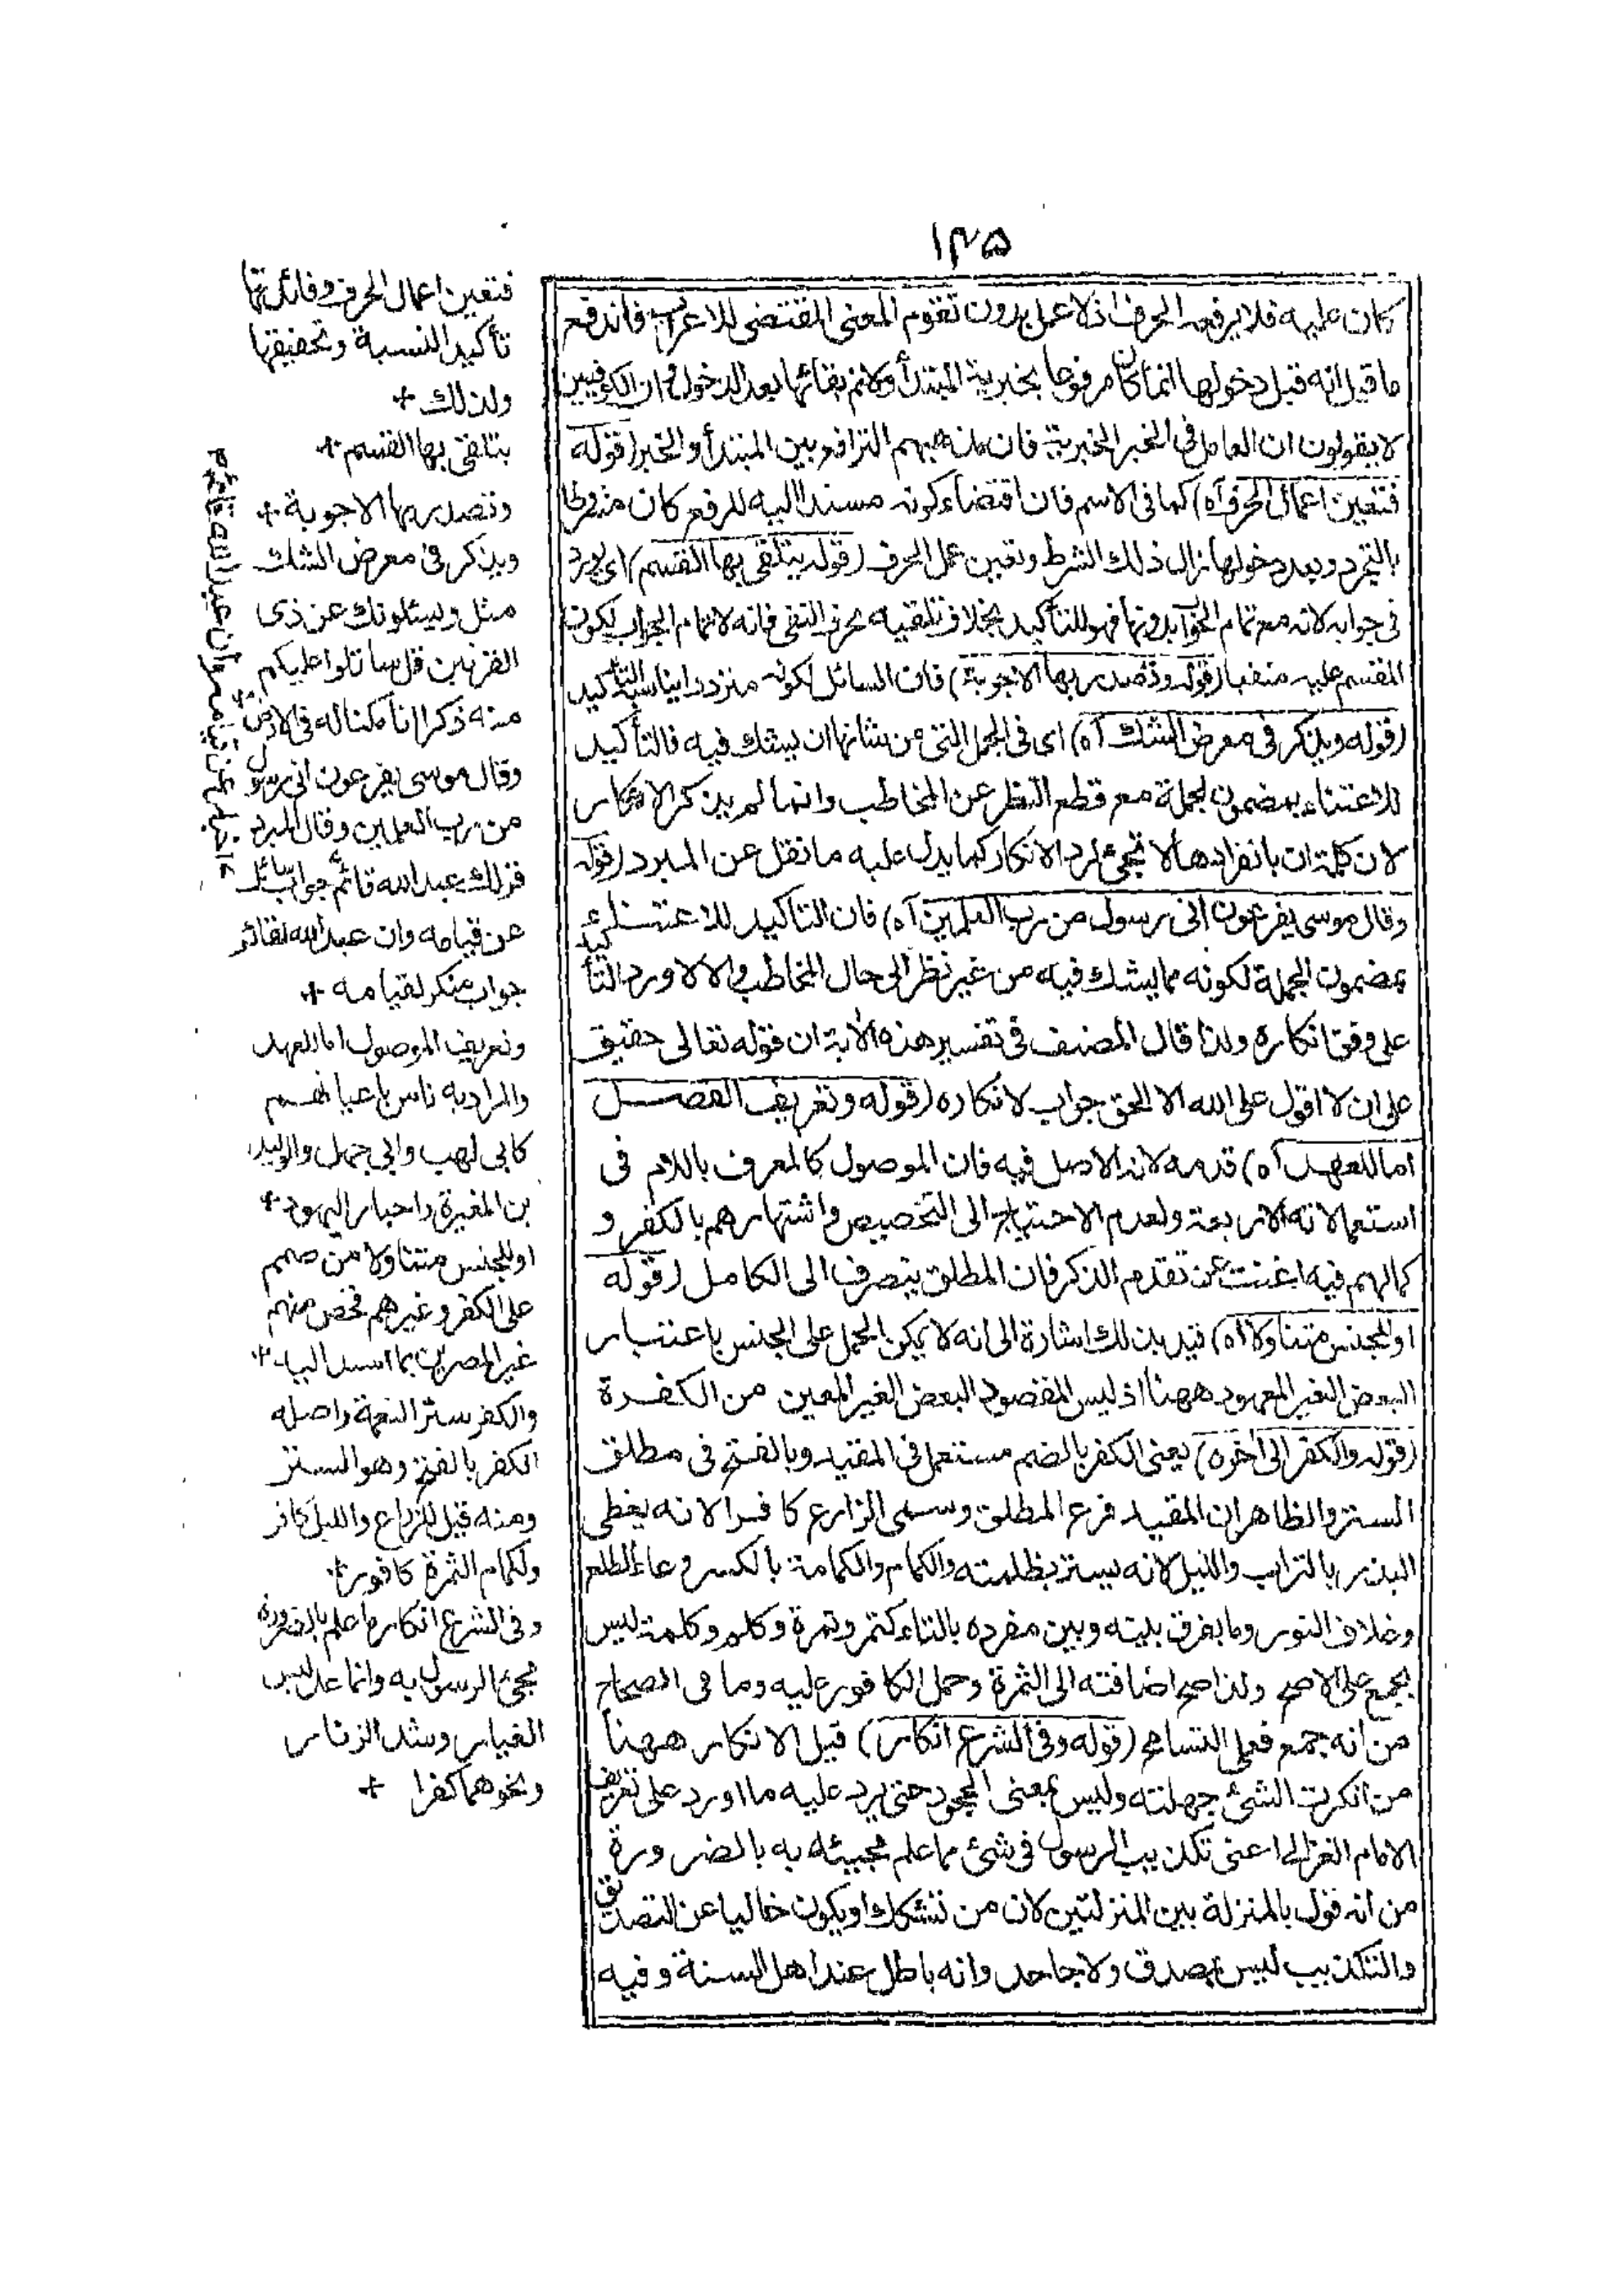 ١٣٥
كان عليه فلا يرفعه الحرف اذ لا عمل بدون تقوم المعنى المقتضى للاعراب فاندفع
ما قيل انه قبل دخولها انما كان مرفوعا بخبرية المبتدأ ولانم بقائها بعد الدخول ان الكوفيين
لا يقولون ان العامل فى الخبر الخبرية فان مذهبهم الترافع بين المبتدأ والخبر (قوله
فتعين اعمال الحرف آه) كما فى الاسم فان اقتضاء كونه مسندا اليه للرفع كان مشروطا
بالتجرد وبعد دخولها زال ذلك الشرط وتعين عمل الحرف (قوله يتلقى بها القسم) اى يورد
فى جوابه لانه مع تمام الجواب بدونها فهو للتأكيد بخلاف تلقيه بحرف النفى فانه لاتمام الجواب لكون
المقسم عليه منفيا (قوله وتصدر بها الاجوبة) فان السائل لكونه مترددا يناسبه التأكيد
(قوله ويذكر فى معرض الشك آه) اى فى الجمل التى من شانها ان يشك فيه فالتأكيد
للاعتناء بمضمون لجملة مع قطع النظر عن المخاطب وانما لم يذكر الانكار
لان كلمة ان بانفرادها لا تجئ لرد الانكار كما يدل عليه ما نقل عن المبرد (قوله
وقال موسى يفرعون انى رسول من رب العلمين آه) فان التاكيد للاعتناء
بمضمون الجملة لكونه مما يشك فيه من غير نظر الى حال المخاطب والا لاورد التأكيد
على وفق انكاره ولذا قال المصنف فى تفسير هذه الآية ان قوله تعالى حقيق
على ان لا اقول على الله الا الحق جواب لانكاره (قوله وتعريف الفصل
اما للعهد آه) قدمه لانه الاصل فيه فان الموصول كالمعرف باللام فى
استعمالاته الاربعة ولعدم الاحتياج الى التخصيص واشتهارهم بالكفر و
كمالهم فيه اغنت عن تقدم الذكر فان المطلق ينصرف الى الكامل (قوله
او للجنس متناولا آه) قيد بذلك اشارة الى انه لا يمكن الحمل على الجنس باعتبار
البعض الغير المعهود ههنا اذ ليس المقصود البعض الغير المعين من الكفرة
(قوله والكفر الى آخره) يعنى الكفر بالضم مستعمل فى المقيد وبالفتح فى مطلق
الستر والظاهر ان المقيد فرع المطلق وسمى الزارع كافرا لانه يغطى
البذر بالتراب والليل لانه يستر بظلمته والكمام والكمامة بالكسر وعاء الطلع
وغلاف النور وما يفرق بينه وبين مفرده بالتاء كتمر وتمرة وكلم وكلمة ليس
بجمع على الاصح ولذا صح اضافته الى الثمرة وحمل الكافور عليه وما فى الصحاح
من انه جمع فعلى التسامح (قوله وفى الشرع انكار) قيل الانكار ههنا
من انكرت الشئ جهلته وليس بمعنى الجحود حتى يرد عليه ما اورد على تعريف
الامام الغزالى اعنى تكذيب الرسول فى شئ مما علم مجيئه به بالضرورة
من انه قول بالمنزلة بين المنزلتين لان من تشكك او يكون خاليا عن التصديق
والتكذيب ليس بمصدق ولا جاحد وانه باطل عند اهل السنة وفيه
فتعين اعمال الحرف وفائدتها
تأكيد النسبة وتحقيقها
ولذلك +
يتلقى بها القسم +
وتصدر بها الاجوبة +
ويذكر فى معرض الشك
مثل ويسئلونك عن ذى
القرنين قل ساتلوا عليكم
منه ذكرا انا مكنا له فى الارض
وقال موسى يفرعون انى رسول
من رب العلمين وقال المبرد
قولك عبد الله قائم جواب سائل
عن قيامه وان عبد الله لقائم
جواب منكر لقيامه +
وتعريف الموصول اما للعهد
والمراد به ناس باعيانهم
كابى لهب وابى جهل والوليد
بن المغيرة واحبار اليهود +
او للجنس متناولا من صمم
على الكفر وغيرهم فخص منهم
غير المصرين بما اسند اليه +
والكفر ستر النعمة واصله
الكفر بالفتح وهو الستر
ومنه قيل للزراع والليل كافر
ولكمام الثمرة كافور +
وفى الشرع انكار ما علم بالضرورة
مجئ الرسول به وانما عد لبس
الغيار وشد الزنار
ونحوهما كفرا +